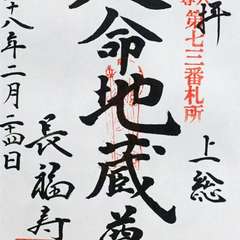 拝
第七三番札所
上総
命地蔵尊
長福寿
十八年二月二十四日